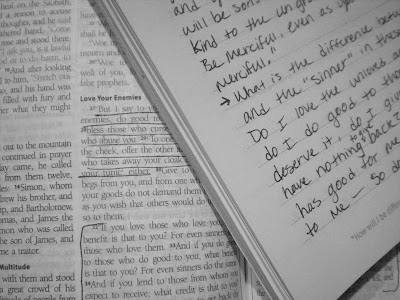 ealed on the Sabbath,
d a reason to accuse
thoughts, and he said
hered hand, "Come
e and stood there.
you, is it lawful
or to do harm, to
And after looking
id to him, "Stretch out
so, and his hand was
filled with fury and
er what they might
out to the mountain
continued in prayer
day came, he called
e from them twelve,
les: Simon, whom
drew his brother, and
ip, and Bartholomew,
omas, and James the
mon who was called
the son of James, and
me a traitor.
Multitude
with them and stood
a great crowd of his
Love Your Enemies
27 "But I say to you
enemies, do good
bless those who curse
who abuse you. 29 To
the cheek, offer the other
who takes away your cloak
your tunic either. 30 Give to
begs from you, and from one
your goods do not demand them
as you wish that others would do
so to them.
32 "If you love those who love you,
benefit is that to you? For even sinners
those who love them. 33 And if you do
those who do good to you, what bene
is that to you? For even sinners do the
34 And if you lend to those from whom
expect to receive, what credit is that to
will be sons
Kind to the ungra
Be merciful, even as you
merciful."
→ What is the difference betw
and the "sinner" in these
Do I love the unloved,
do I do good to tho
deserve it, do I give
have nothing back?
has good for me
to me